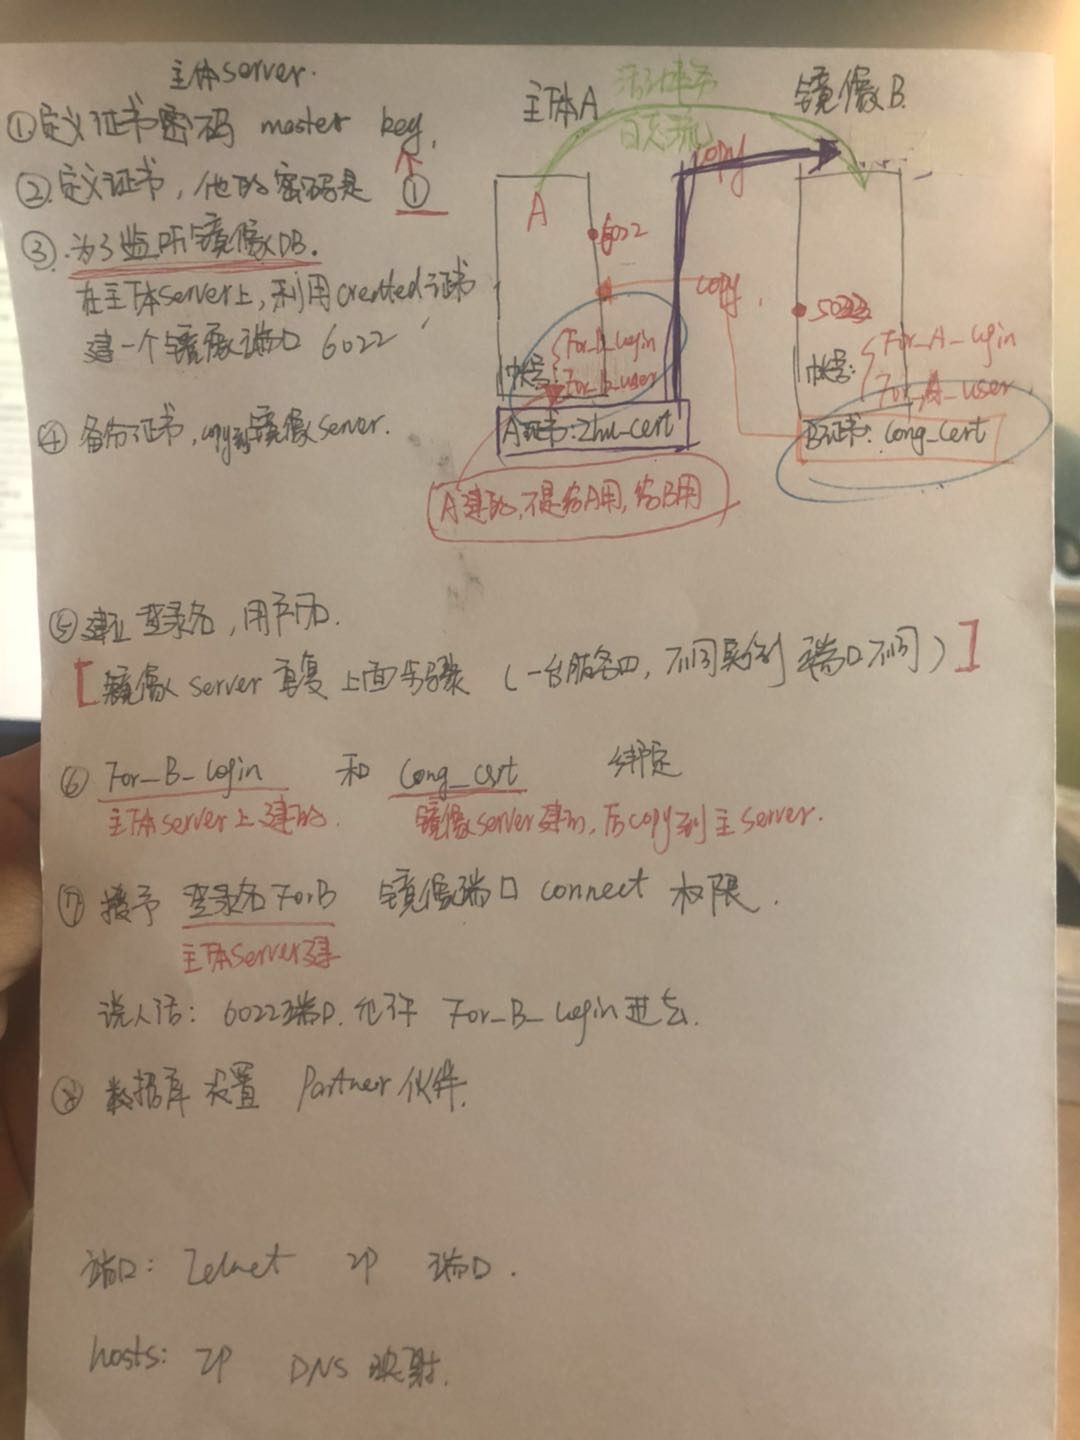 主体server.
①定义证书密码 master key.
②定义证书,他的密码是 ①
③.为了监听镜像DB.
在主体server上,利用created证书
建一个镜像端口 6022
④ 备份证书,copy到镜像server.
主体A
镜像B.
活动事务
日志流
copy
A
6022
copy.
5033
帐号:
For_b_login
For_b_user
帐号:
For_A_login
For_A_user
A证书:Zhu_cert
B证书:Cong_cert
A建的,不是给A用,给B用
⑤建立登录名,用户名.
[镜像server重复上面步骤(一台服务四,不同实例 端口不同)]
⑥ For_B_login 和 Cong_cert 绑定
主体server上建的. 镜像server建的,后copy到主server.
⑦ 授予 登录名ForB 镜像端口 connect 权限.
主体server建
说人话: 6022端口.允许 For_B_login进去.
⑧ 数据库设置 Partner伙伴.
端口: Telnet IP 端口.
hosts: IP DNS 映射.